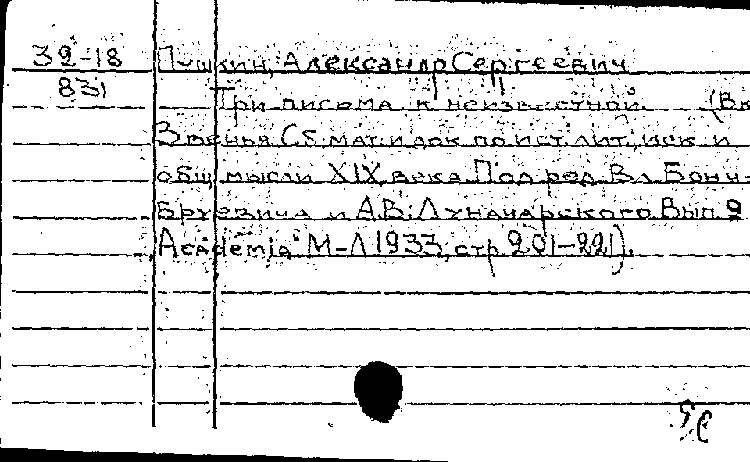 32-18 Пушкин, Александр Сергеевич
831 Три письма к неизвестной. (Вкн
Звенья Сб. мат. и док. по ист. лит., иск. и
общ. мысли XIX века. Под ред. Вл. Бонч-
Бруевича и А.В. Луначарского. Вып. 2
"Academia" М-Л 1933, стр. 201-221).